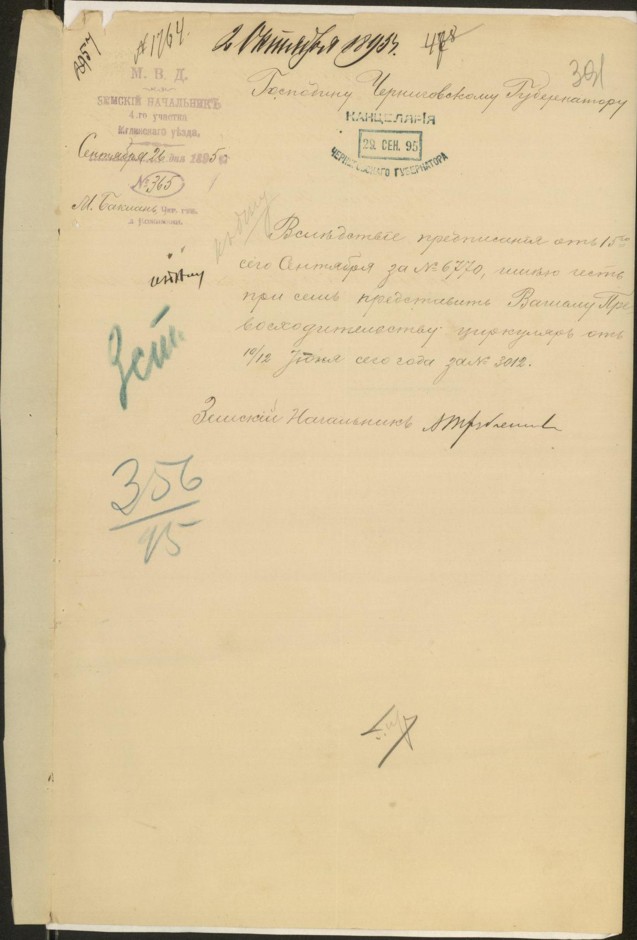 №1764. 2 Октября 1895г. 478
391
М. В. Д.
ЗЕМСКІЙ НАЧАЛЬНИКЪ
4-го участка
уѣзда,
Сентября 26 дня 1895 г.
№ 365
М. Бакланъ, Чер. губ.
Господину Черниговскому Губернатору
КАНЦЕЛЯРІЯ
29. СЕН. 95
ЧЕРНИГОВСКАГО ГУБЕРНАТОРА
Вслѣдствіе предписанія отъ 15го
сего Сентября за № 6770, имѣю честь
при семъ представить Вашему Пре
восходительству циркуляръ отъ
10/12 Іюня сего года за № 3012.
Земскій Начальникъ
356
95